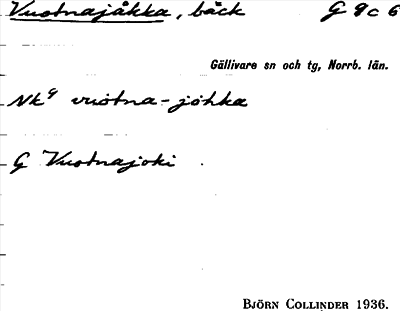 Vuotnajåkka, bäck G 9 c 6
Gällivare sn och tg, Norrb. län.
Nk⁹ vuotna-johka
G Vuotnajoki
BJÖRN COLLINDER 1936.